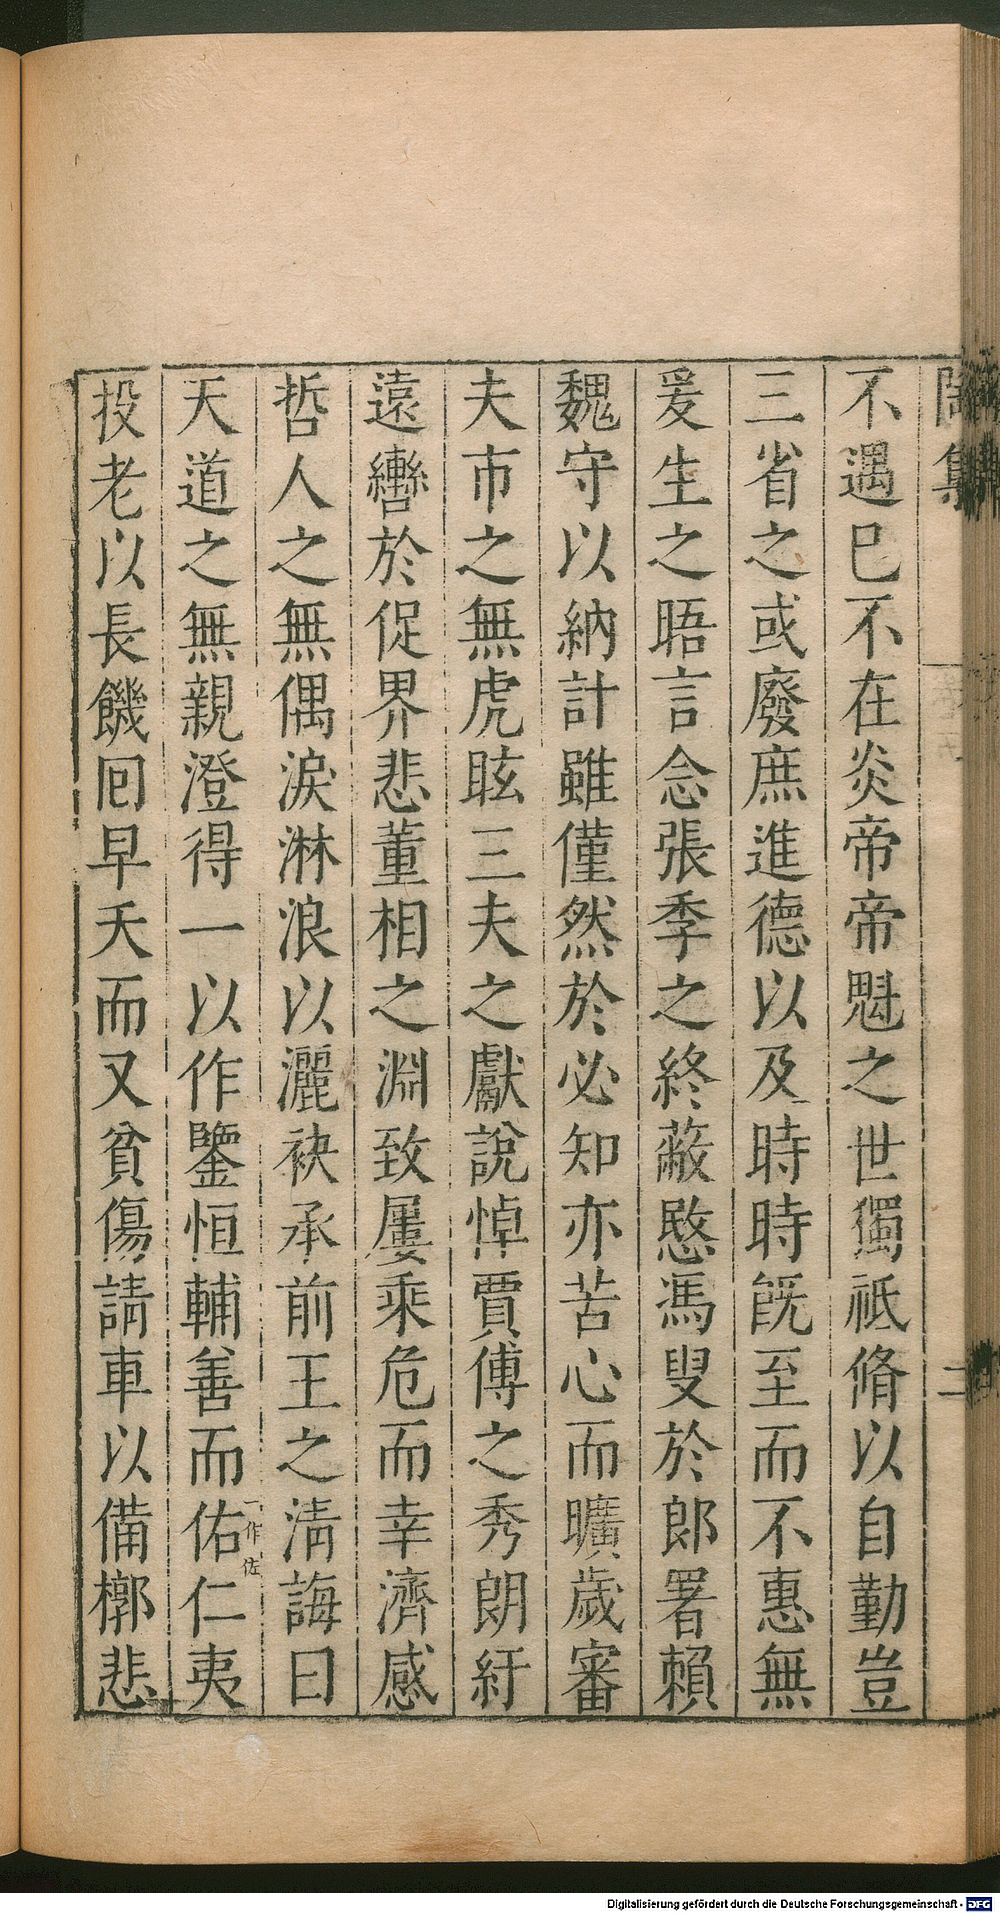 陶集
二
不遇已不在炎帝帝魁之世獨祗脩以自勤豈
三省之或廢庶進德以及時時旣至而不惠無
爰生之晤言念張季之終蔽愍馮叟於郎署賴
魏守以納計雖僅然於必知亦苦心而曠歲審
夫市之無虎眩三夫之獻說悼賈傅之秀朗紆
遠轡於促界悲董相之淵致屢乘危而幸濟感
哲人之無偶淚淋浪以灑袂承前王之淸誨曰
天道之無親澄得一以作鑒恒輔善而佑一作佐仁夷
投老以長饑囘早夭而又貧傷請車以備槨悲
Digitalisierung gefördert durch die Deutsche Forschungsgemeinschaft - DFG